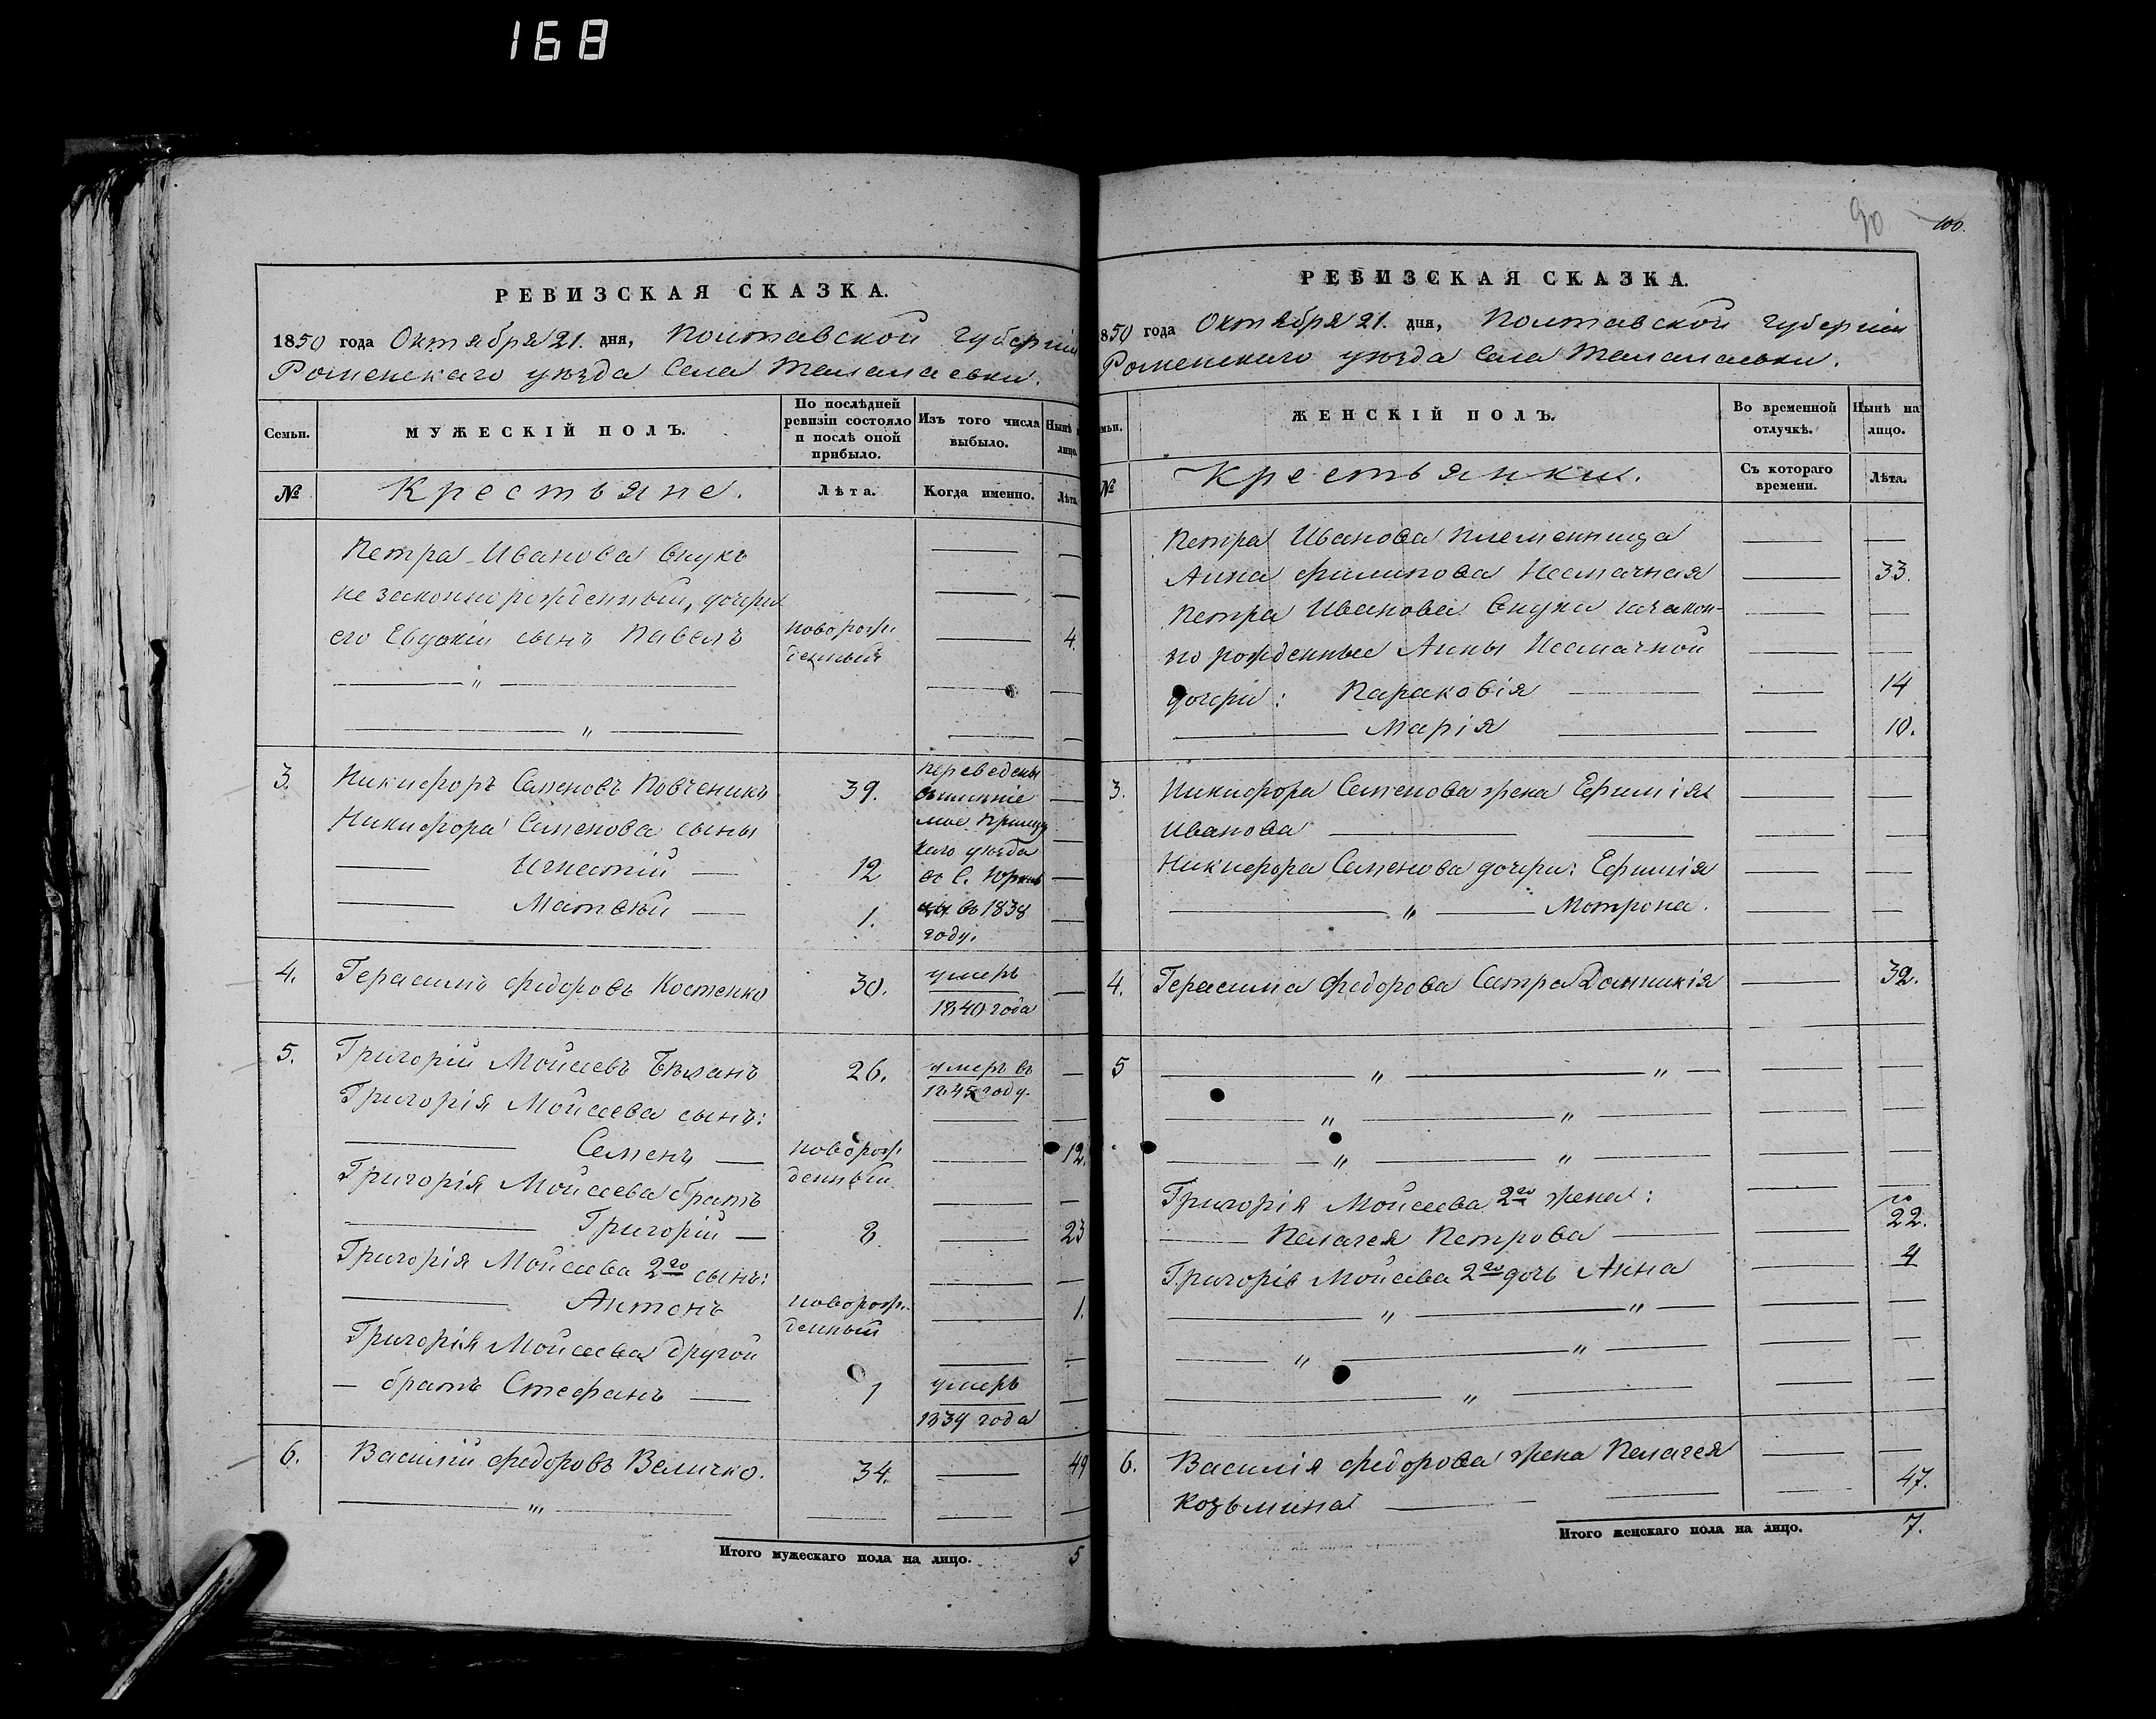 168
РЕВИЗСКАЯ СКАЗКА.
1850 года Октября 21. дня, Полтавской Губерніи
Роменскаго уѣзда Села Талалаевки.
Семьи.
МУЖЕСКІЙ ПОЛЪ.
По послѣдней
ревизіи состояло
и послѣ оной
прибыло.
Изъ того числа
выбыло.
Нынѣ
лицо.
№
Крестьяне.
Лѣта.
Когда именно.
Лѣта.
Петра Иванова внукъ
незаконнорожденный, дочери
его Евдокіи сынъ Павелъ новорож- 4.
денный
3. Никифоръ Семеновъ 39. переведены
Никифора Семенова сыны
Игнатій 12 уѣзда
Матвѣй 1. въ 1838
году.
4. Герасимъ Федоровъ Костенко 30. умеръ
1840 года
5. Григорій Мойсеевъ Бѣланъ 26. умеръ въ
году.
Григорія Мойсеева сынъ:
Семенъ новорож- 12.
денный
Григорія Мойсеева братъ
Григорій 8 23
Григорія Мойсеева 2го сынъ:
Антонъ новорож- 1.
денный
Григорія Мойсеева другой
братъ Стефанъ 1 умеръ
1839 года
6. Василій Федоровъ Величко. 34. 49
Итого мужескаго пола на лицо. 5
90 100.
РЕВИЗСКАЯ СКАЗКА.
850 года Октября 21. дня, Полтавской Губерніи
Роменскаго уѣзда Села Талалаевки.
мьи.
ЖЕНСКІЙ ПОЛЪ.
Во временной
отлучкѣ.
Нынѣ на
лицо.
№
Крестьянки.
Съ котораго
времени.
Лѣта.
Петра Иванова племенница
Анна Филипова Несмачная 33.
Петра Иванова внуки незакон-
но рожденные Анны Несмачной
дочери: Параковія 14
Марія 10.
3. Никифора Семенова жена Ефимія
Иванова
Никифора Семенова дочери: Ефимія
Мотрона.
4. Герасима Федорова сестра Домникія 32.
5
Григорія Мойсеева 2го жена:
Пелагея Петрова 22.
Григорія Мойсеева 2го дочь Анна 4
6. Василія Федорова жена Пелагея
Козьмина 47.
Итого женскаго пола на лицо. 7.